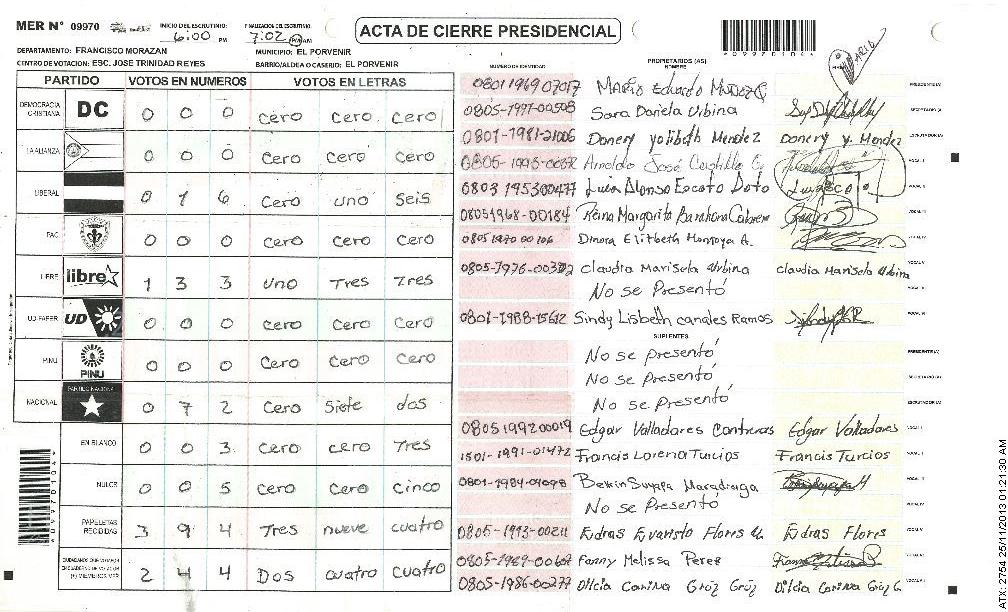 MER N° 09970
INICIO DEL ESCRUTINIO: 6:00 PM
FINALIZACION DEL ESCRUTINIO: 7:02 PM AM
ACTA DE CIERRE PRESIDENCIAL
*09970104*
MARIO
DEPARTAMENTO: FRANCISCO MORAZAN
MUNICIPIO: EL PORVENIR
CENTRO DE VOTACION: ESC. JOSE TRINIDAD REYES
BARRIO/ALDEA O CASERIO: EL PORVENIR
PARTIDO VOTOS EN NUMEROS VOTOS EN LETRAS
DEMOCRACIA CRISTIANA DC 0 0 0 cero cero cero
LA ALIANZA 0 0 0 cero cero cero
LIBERAL 0 1 6 cero uno seis
PAC 0 0 0 cero cero cero
LIBRE libre 1 3 3 uno Tres Tres
UD-FAPER UD 0 0 0 cero cero cero
PINU PINU 0 0 0 cero cero cero
NACIONAL PARTIDO NACIONAL 0 7 2 cero siete dos
EN BLANCO 0 0 3 cero cero Tres
NULOS 0 0 5 cero cero cinco
PAPELETAS RECIBIDAS 3 9 4 Tres nueve cuatro
CIUDADANOS QUE VOTARON EN CUADERNO DE VOTACION (+) MIEMBROS MER 2 4 4 Dos cuatro cuatro
NUMERO DE IDENTIDAD
PROPIETARIOS (AS)
NOMBRE
0801 1969 07017 Mario Eduardo PRESIDENTE (A)
0805-1997-00508 Sara Daniela Urbina SECRETARIO (A)
0801-1981-21006 Donery yolibeth Mendez Donery y. Mendez ESCRUTADOR (A)
Arnoldo José Castillo VOCAL I
0803 195300477 Luis Alonso Escoto VOCAL II
08051968-00184 Reina Margarita Barahona VOCAL III
0805 1970 00106 Dinora Elizbeth Montoya A. VOCAL IV
0805-1976-00302 Claudia Marisela Urbina Claudia Marisela Urbina VOCAL V
No se Presentó
0801-1988-15612 Sindy Lisbeth canales Ramos
SUPLENTES
No se presentó PRESIDENTE (A)
No se presentó SECRETARIO (A)
No se presentó ESCRUTADOR (A)
0805 1992 00019 Edgar Valladares Contreras Edgar Valladares VOCAL I
1501-1991-01472 Francis Lorena Turcios Francis Turcios
0801-1984-04098 Maradiaga
No se Presentó
0805-1993-00211 Esdras Evaristo Flores Esdras Flores
Fanny Melissa Perez
0805-1986-00277 Dilcia Carina
*09970104*
ATX: 2754 25/11/2013 01:21:30 AM